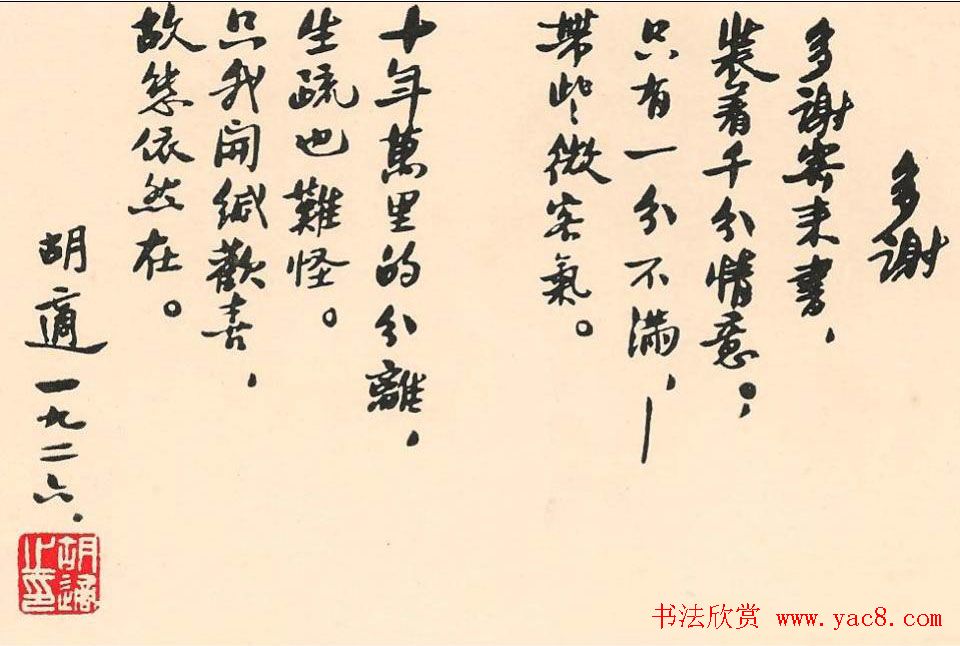 多謝
多謝寄来書，
裝着千分情意；
只有一分不滿，—
帶些微客氣。
十年萬里的分離，
生疏也難怪。
只我開緘歡喜，
故態依然在。
胡適 一九二六，
胡適之印
书法欣赏 www.yac8.com